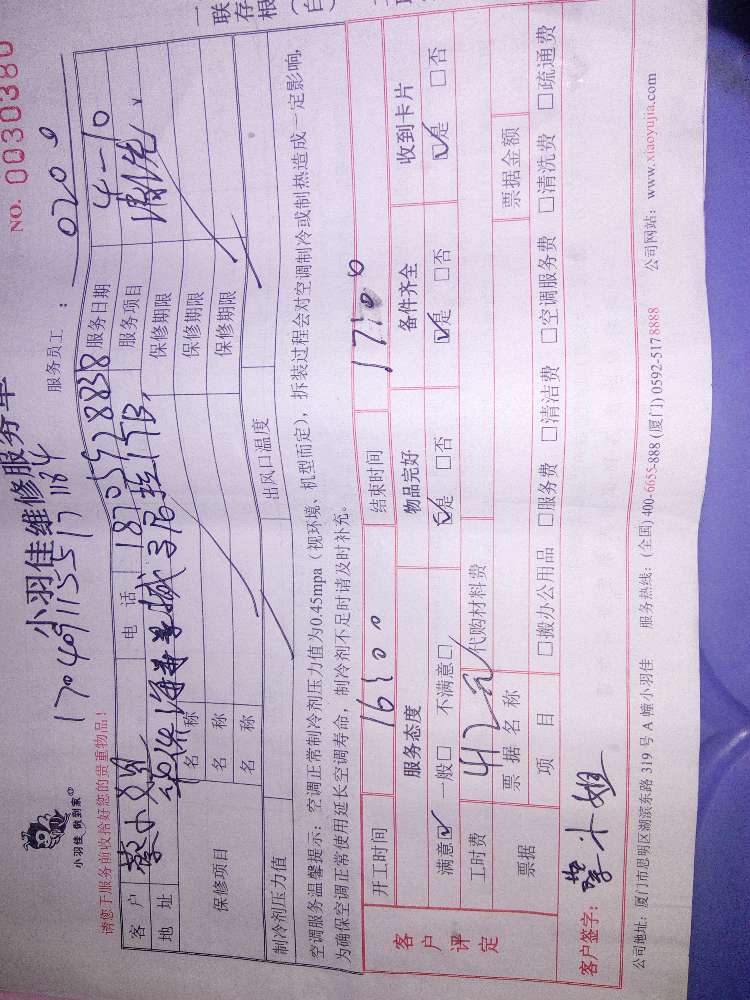 小羽佳 做到家
小羽佳维修服务单
NO. 0030380
一联存根
1704091155171184
请您于服务前收拾好您的贵重物品!
服务员工:
0200
客户 蔡小姐 电话 18705928838 服务日期 4-10
地址 服务项目 清洗
保修项目 名称 保修期限
名称 保修期限
名称 保修期限
制冷剂压力值 出风口温度
空调服务温馨提示:空调正常制冷剂压力值为0.45mpa(视环境、机型而定),拆装过程会对空调制冷或制热造成一定影响,
为确保空调正常使用延长空调寿命,制冷剂不足时请及时补充。
客户评定
开工时间 16:00 结束时间 17:00
服务态度 物品完好 备件齐全 收到卡片
满意☑ 一般□ 不满意□ ☑是 □否 ☑是 □否 ☑是 □否
工时费 412元 代购材料费
票据 票据名称 票据金额
项目 □搬办公用品 □服务费 □清洁费 □空调服务费 □清洗费 □疏通费
客户签字: 蔡小姐
公司地址:厦门市思明区湖滨东路 319 号 A 幢小羽佳 服务热线:(全国) 400-6655-888 (厦门) 0592-5178888 公司网站:www.xiaoyujia.com